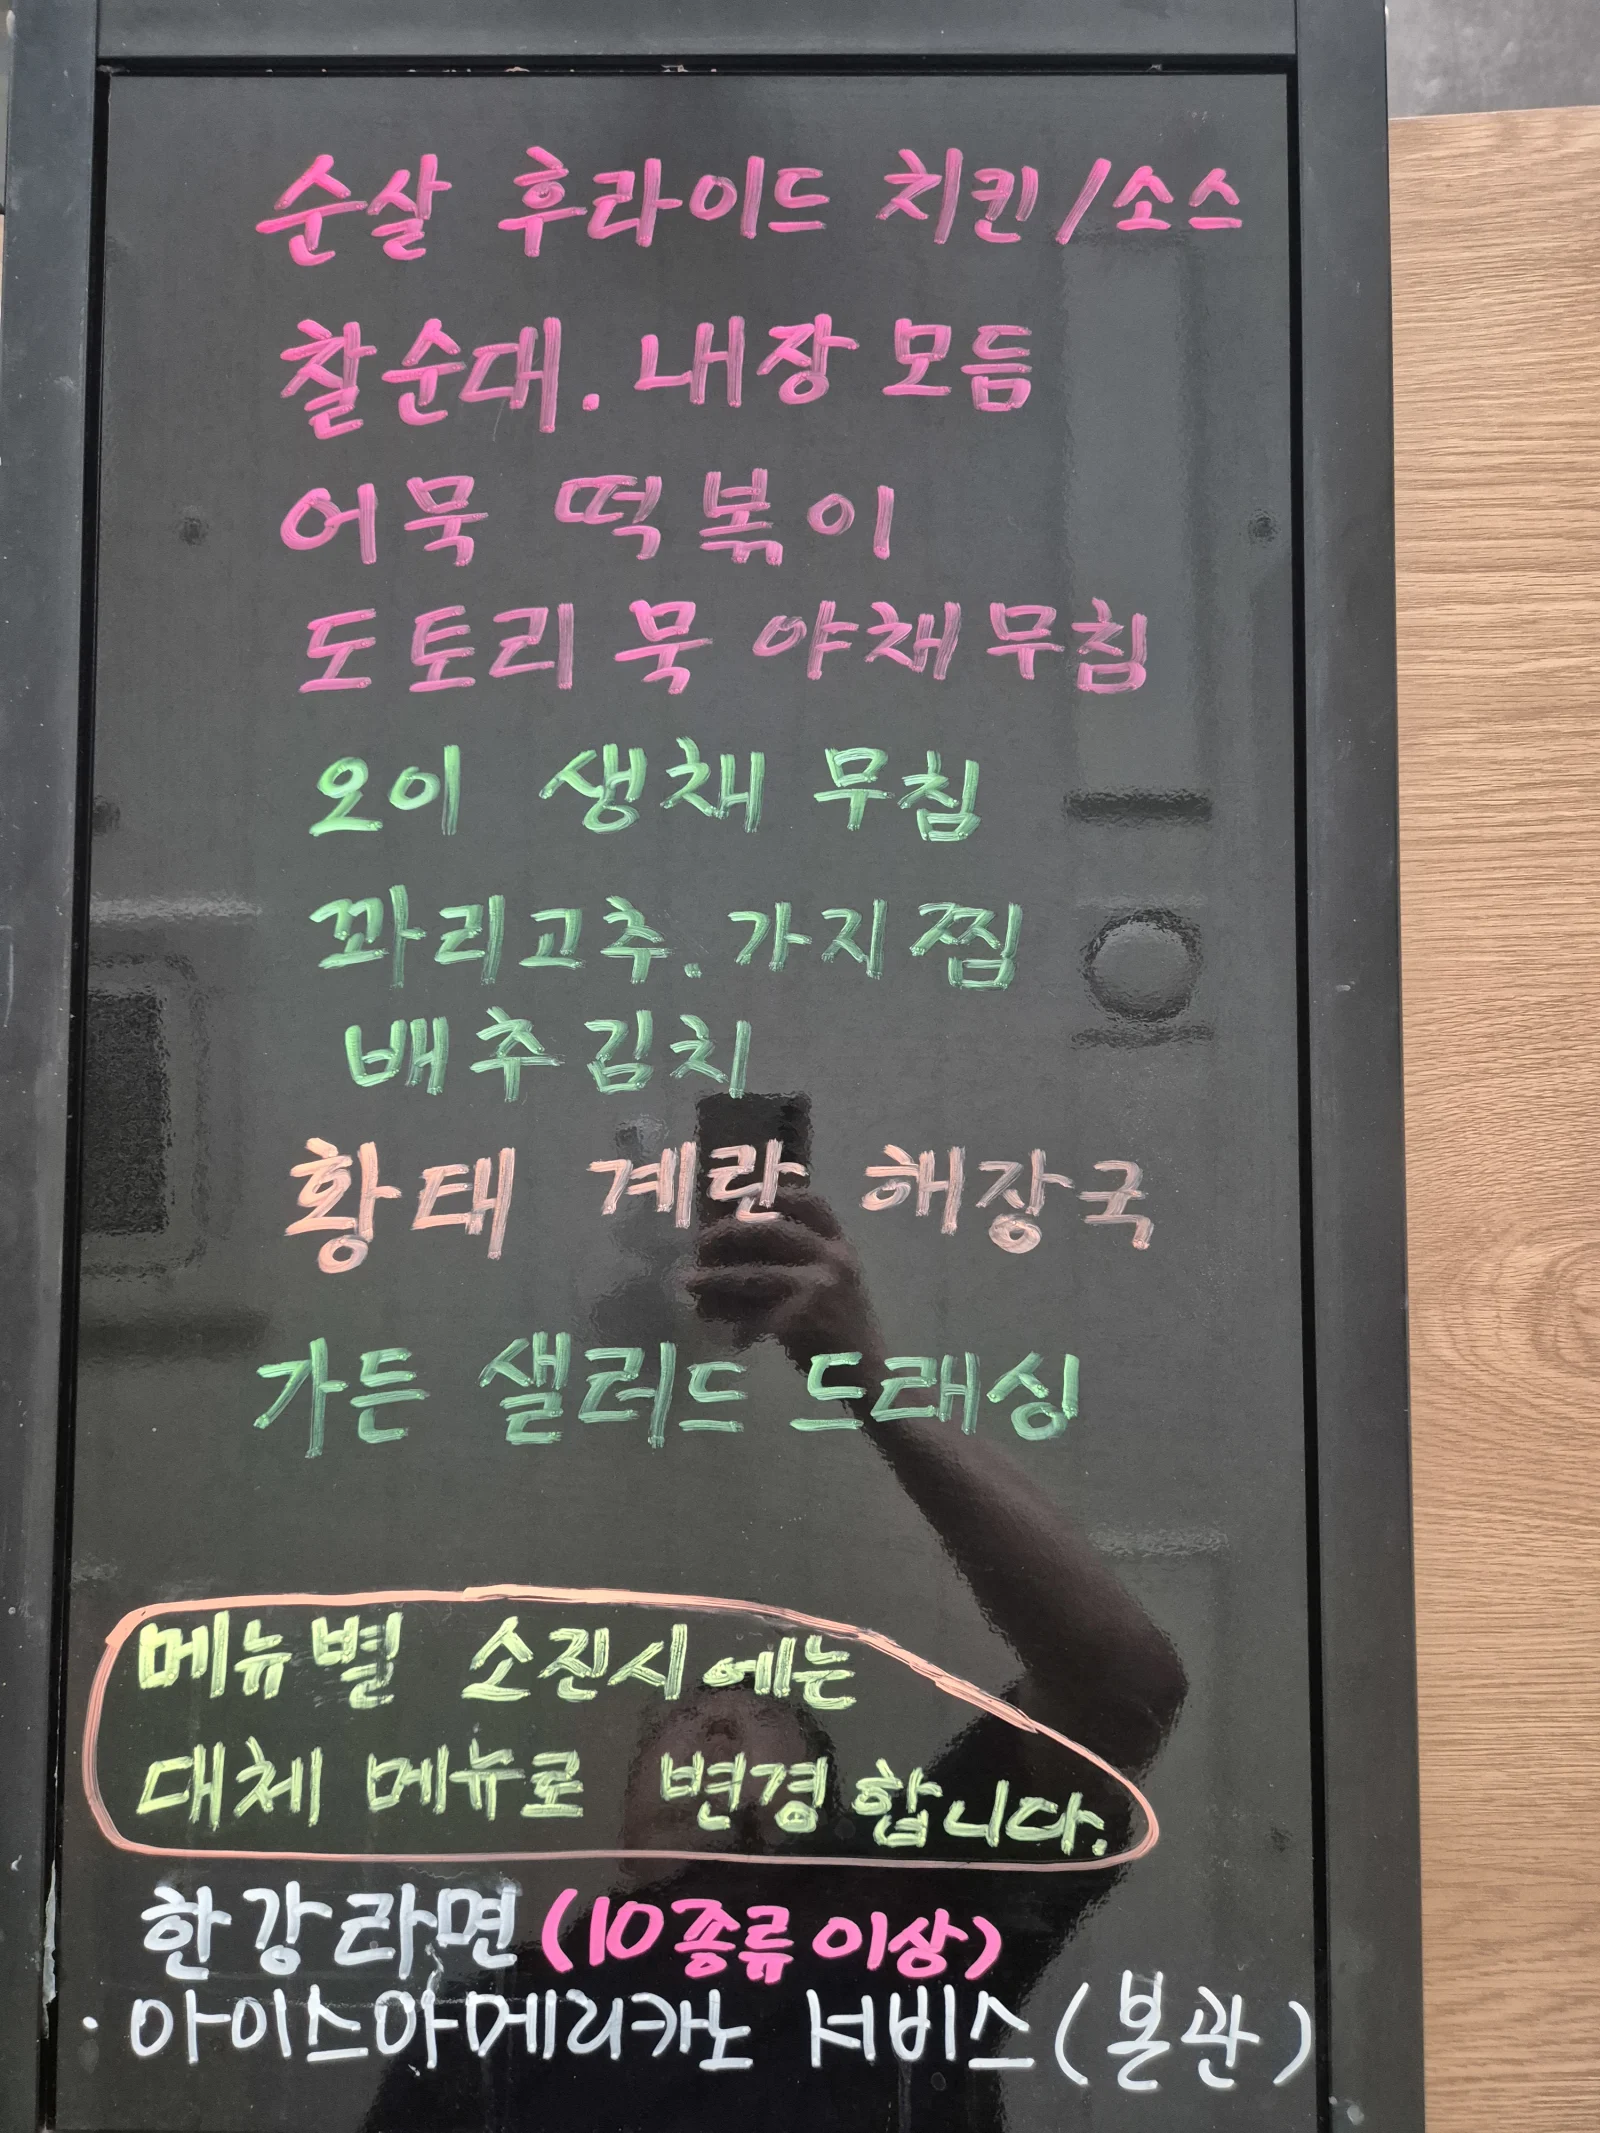 순살 후라이드 치킨/소스
찰순대. 내장 모듬
어묵 떡볶이
도토리 묵 야채무침
오이 생채 무침
꽈리고추. 가지찜
배추김치
황태 계란 해장국
가든 샐러드 드래싱
메뉴별 소진시에는
대체 메뉴로 변경합니다.
한강라면 (10종류이상)
· 아이스아메리카노 서비스(본관)